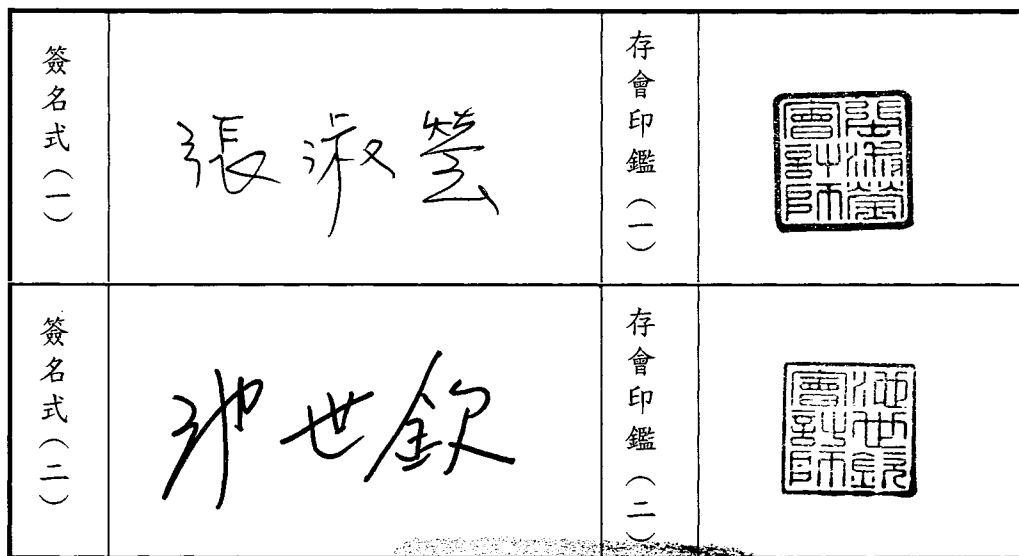 簽名式（一）
張淑瑩
存會印鑑（一）
張淑瑩
會計師
簽名式（二）
池世欽
存會印鑑（二）
池世欽
會計師